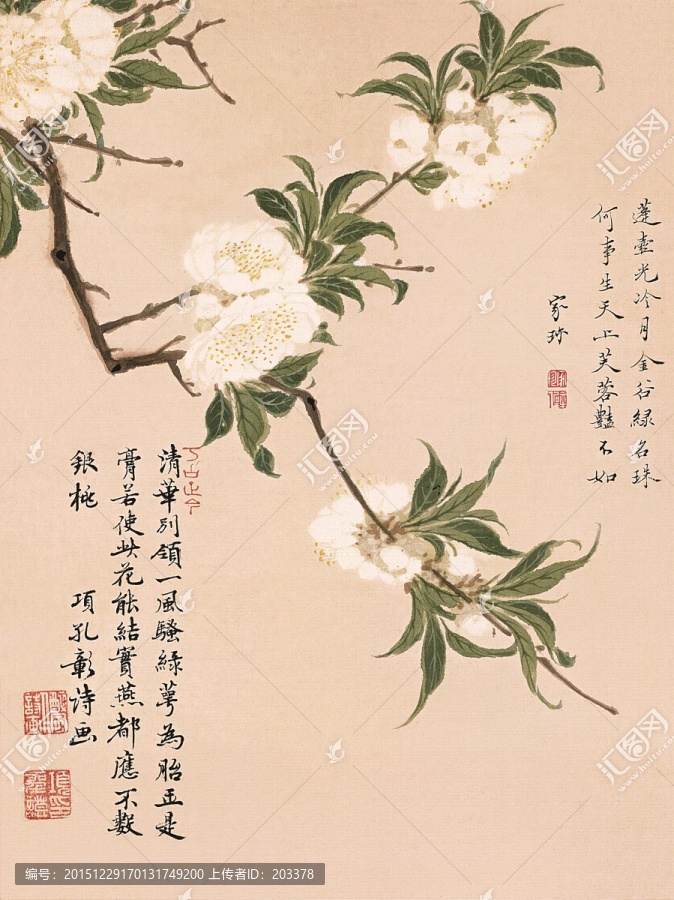 蓬壺光冷月金谷綠名珠
何事生天上芙蓉豔不如
家珍
清華別領一風騷綠萼為胎玉是
膏若使此花能結實燕都應不數
銀桃 項孔彰詩画
汇图网
www.huitu.com
编号：20151229170131749200 上传者ID：203378